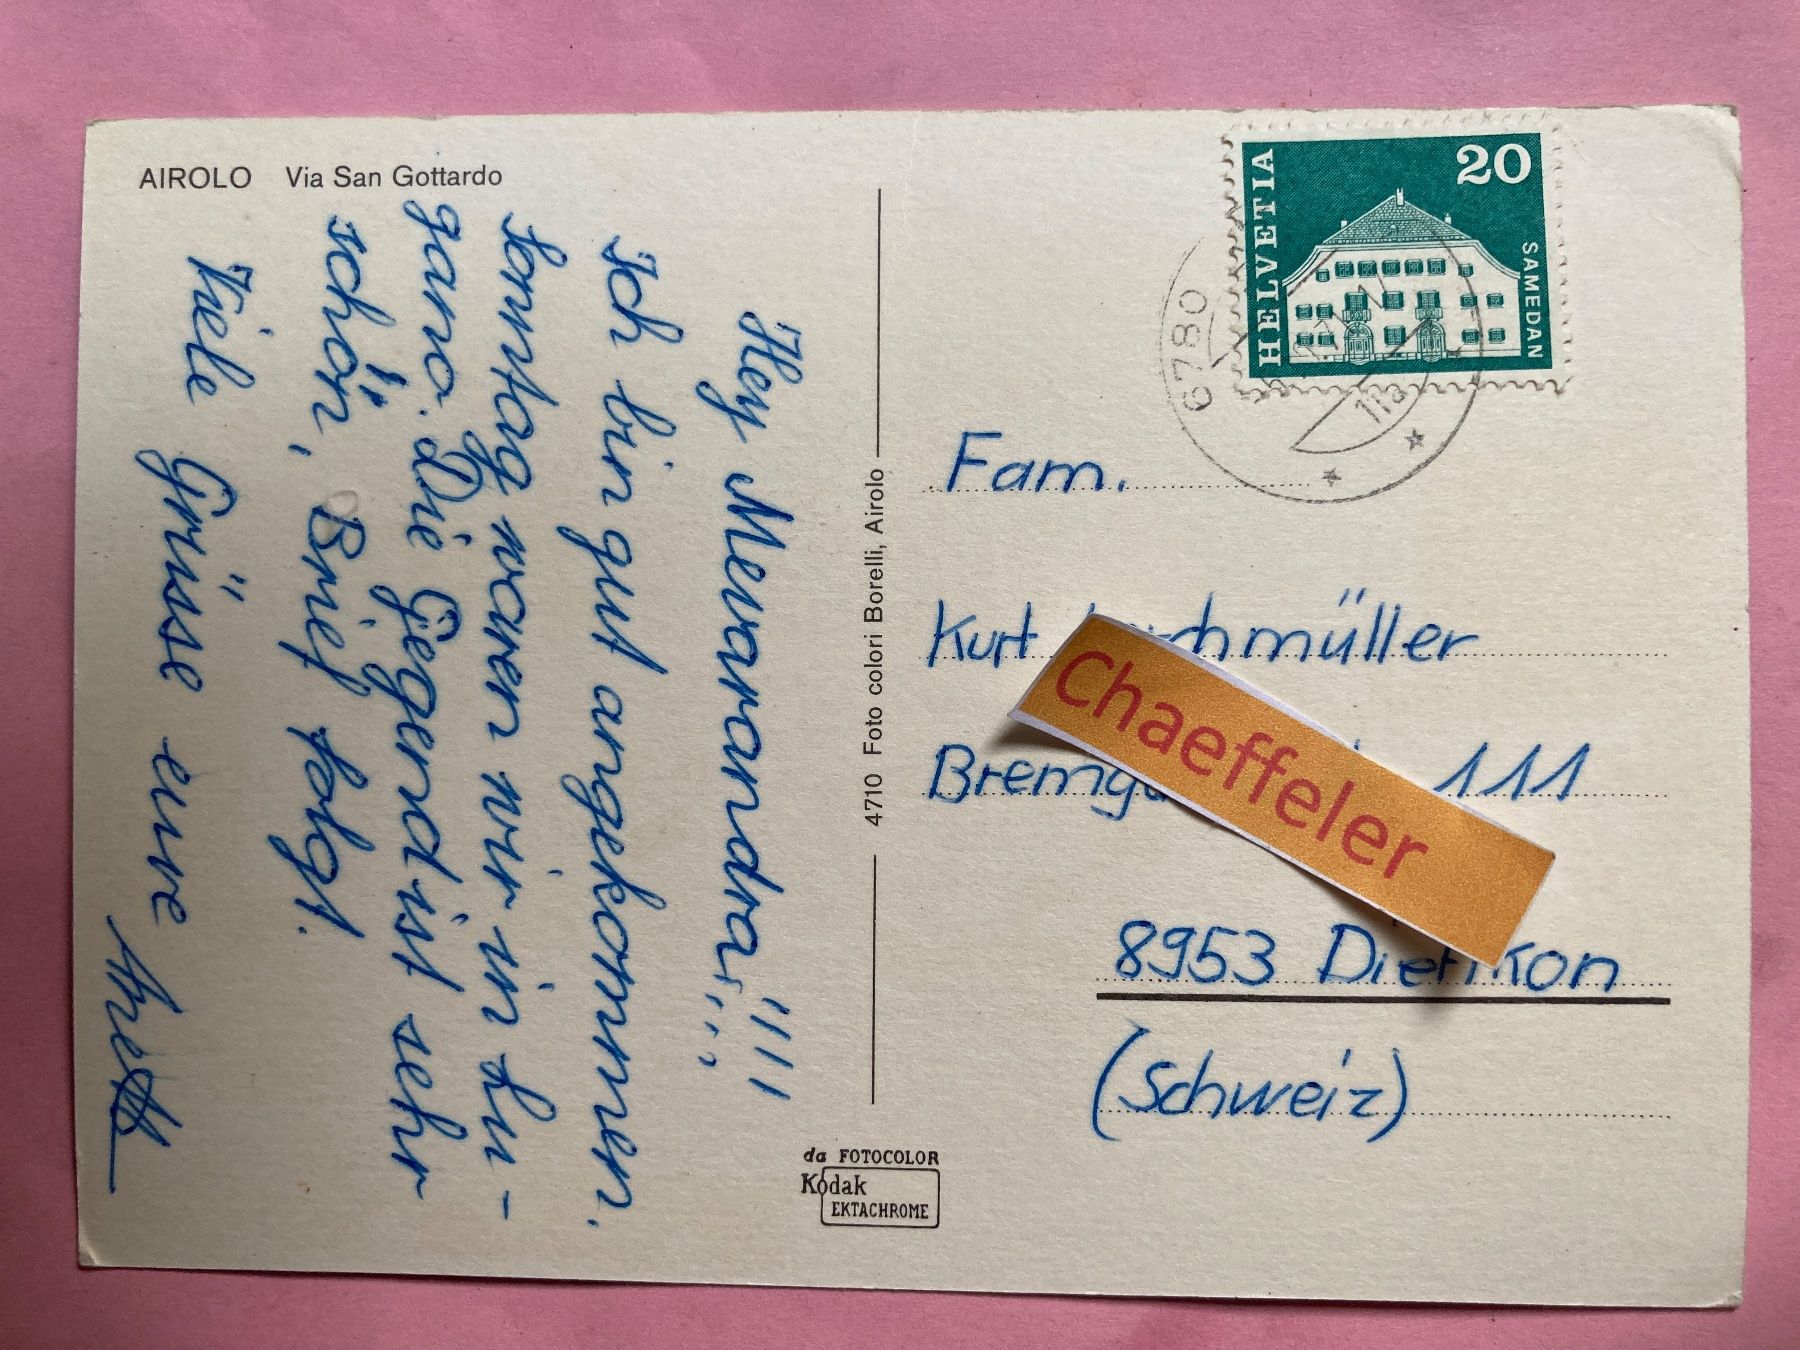 AIROLO Via San Gottardo
Hey Mevarandra, !!!!
Ich bin gut angekommen.
Sonntag waren wir in Lu-
gano. Die Gegend ist sehr
schön, Brief folgt.
Viele Grüsse eure
4710 Foto colori Borelli, Airolo
da FOTOCOLOR
Kodak
EKTACHROME
HELVETIA
20
SAMEDAN
6780
Fam.
Kurt
111
8953 Dietikon
(Schweiz)
Chaeffeler